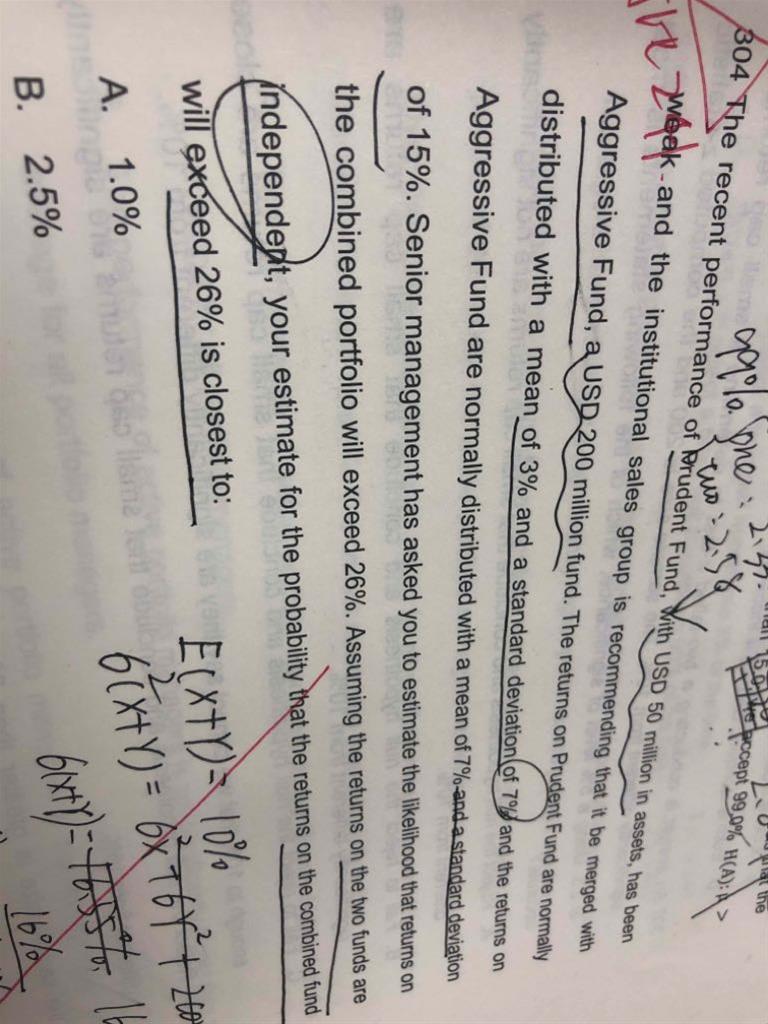 99% one: 2.33.
two: 2.58
accept 99.0% H(A):
304 The recent performance of Prudent Fund, with USD 50 million in assets, has been
weak and the institutional sales group is recommending that it be merged with
Aggressive Fund, a USD 200 million fund. The returns on Prudent Fund are normally
distributed with a mean of 3% and a standard deviation of 7% and the returns on
Aggressive Fund are normally distributed with a mean of 7% and a standard deviation
of 15%. Senior management has asked you to estimate the likelihood that returns on
the combined portfolio will exceed 26%. Assuming the returns on the two funds are
independent, your estimate for the probability that the returns on the combined fund
will exceed 26% is closest to:
E(X+Y)= 10%
A. 1.0%
B. 2.5%
16%